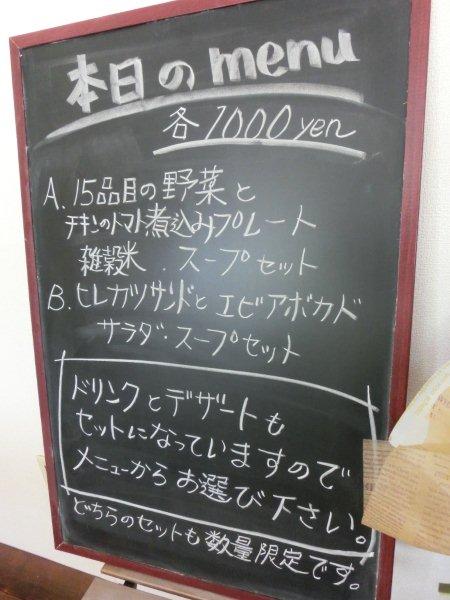 本日のmenu
各1000yen
A. 15品目の野菜と
チキンのトマト煮込みプレート
雑穀米.スープセット
B. ヒレカツサンドとエビアボカド
サラダ・スープセット
ドリンクとデザートも
セットになっていますので
メニューからお選び下さい。
どちらのセットも数量限定です。